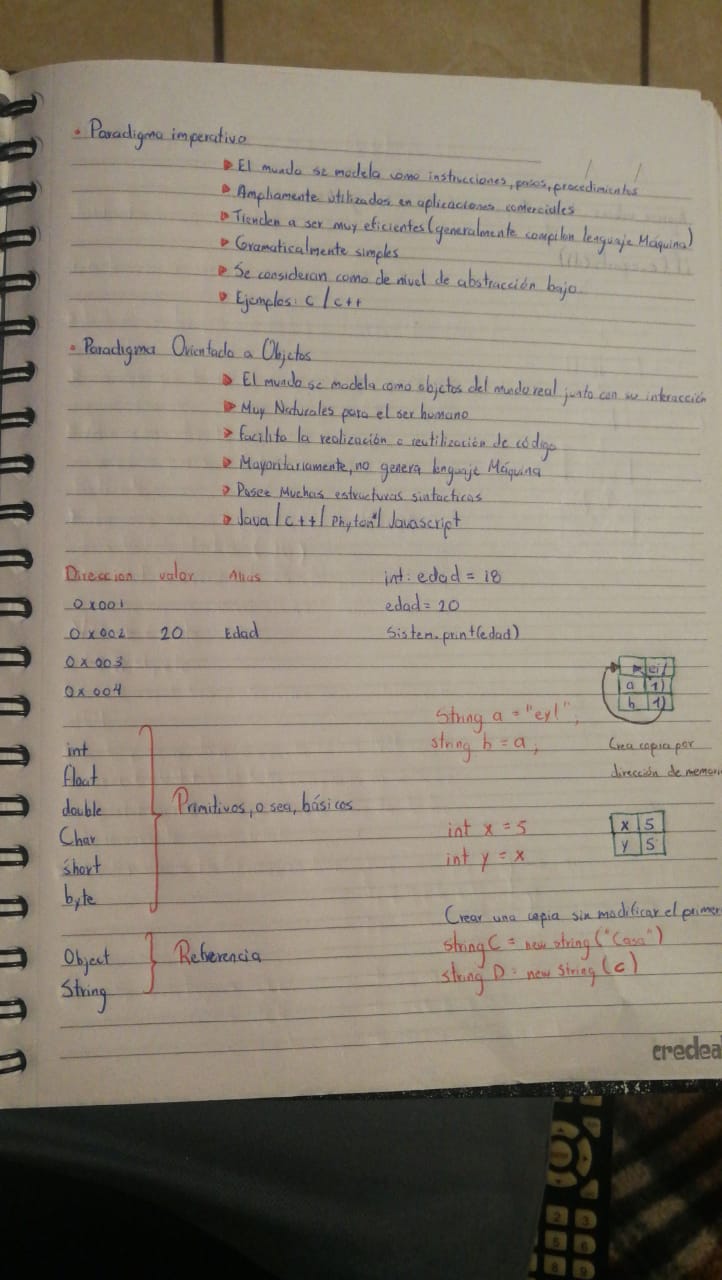 • Paradigma imperativo
El mundo se modela como instrucciones, pasos, procedimientos
Ampliamente utilizados en aplicaciones comerciales
Tienden a ser muy eficientes (generalmente compilan lenguaje Máquina)
Gramaticalmente simples
Se consideran como de nivel de abstracción bajo.
Ejemplos: C / C++
• Paradigma Orientado a Objetos
El mundo se modela como objetos del mundo real junto con su interacción
Muy Naturales para el ser humano
Facilita la realización o reutilización de código
Mayoritariamente, no genera lenguaje Máquina
Posee Muchas estructuras sintacticas
Java / C++ / Phyton / Javascript
Direccion valor Alias
int: edad = 18
0x001
edad = 20
0x002 20 Edad
Sistem.print(edad)
0x003
0x004
a 1)
b 1)
String a = "ey!";
string b = a;
Crea copia por
dirección de memori
int
float
double
Char
short
byte
Primitivos, o sea, básicos
int x = 5
int y = x
x 5
y 5
Crear una copia sin modificar el primer
string C = new string ("Casa")
string D = new String (c)
Object
String
Referencia
credea
2 3
5 6
8 9